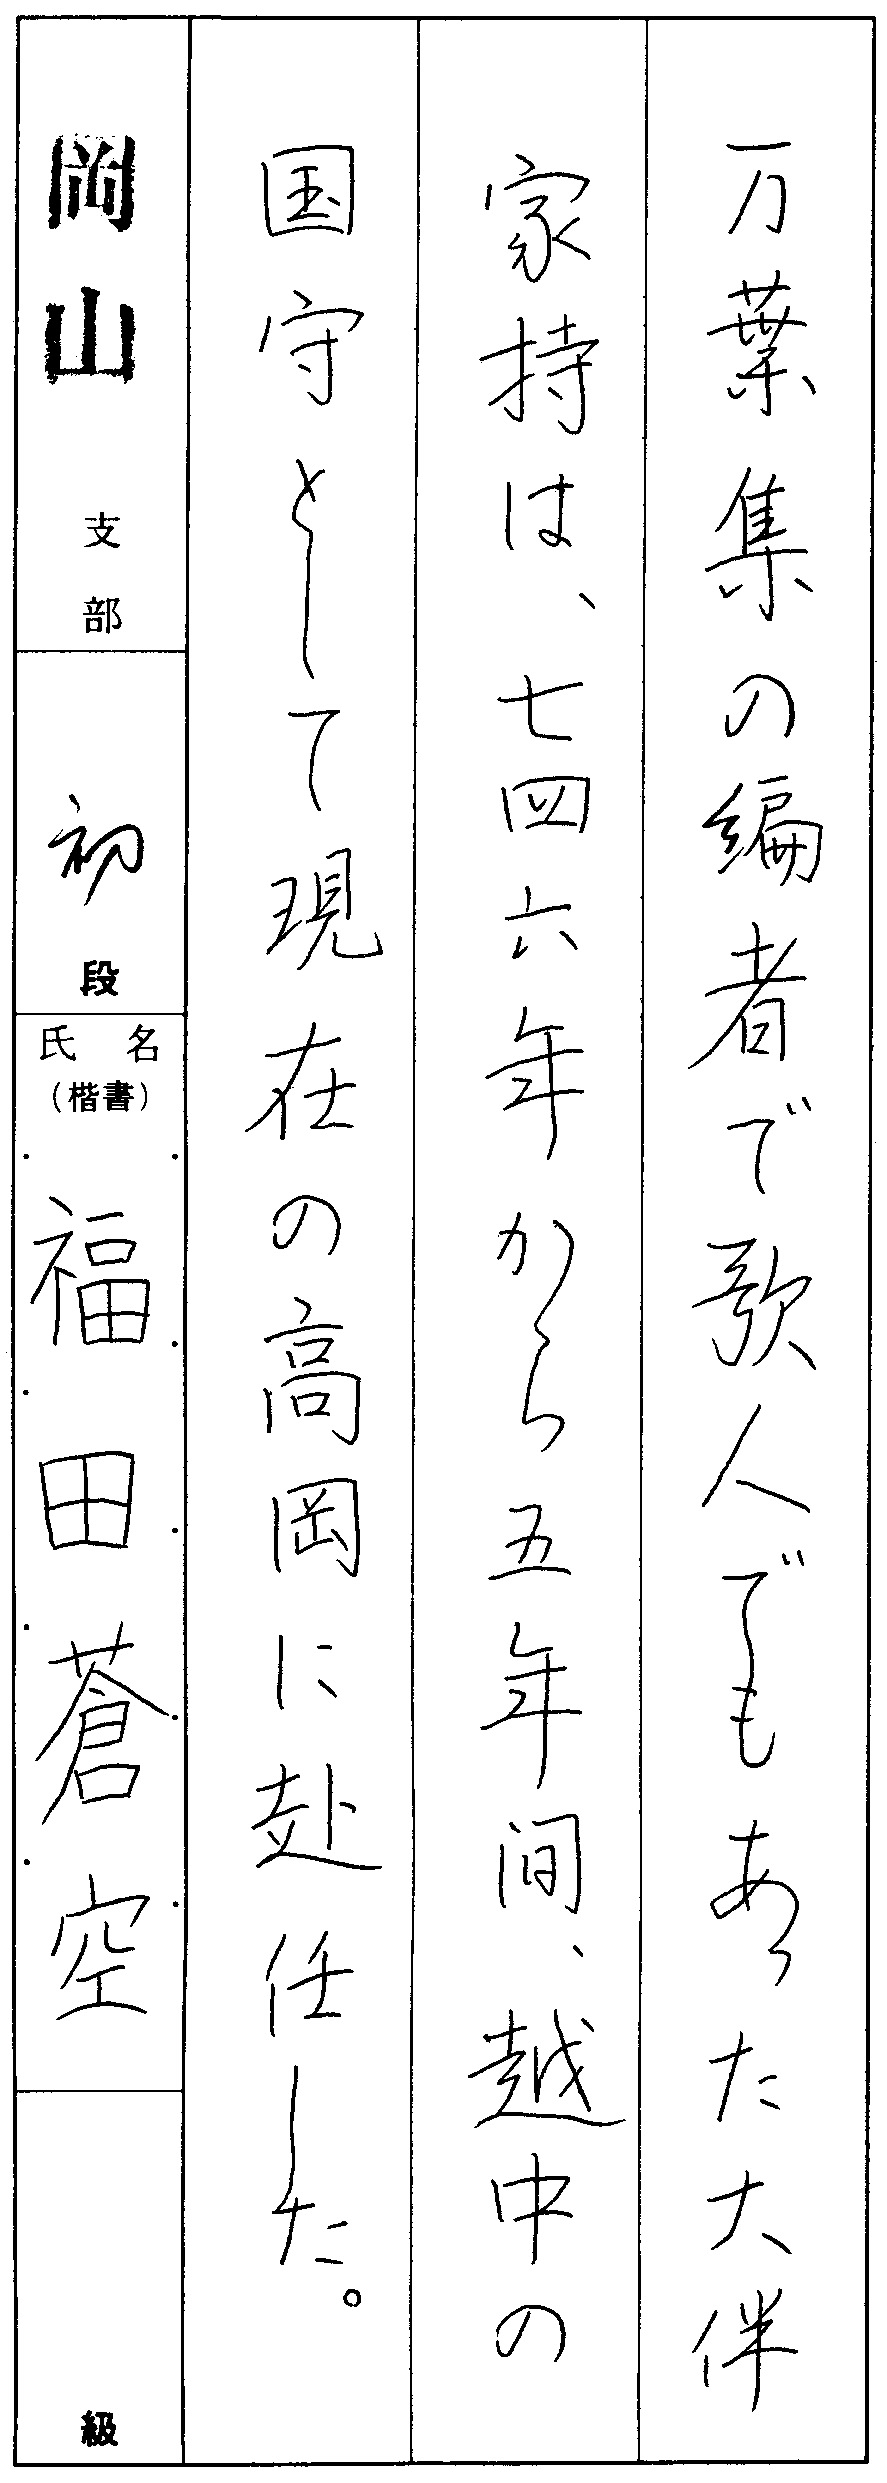 万葉集の編者で歌人でもあった大伴
家持は、七四六年から五年間、越中の
国守として現在の高岡に赴任した。
岡山支部
初段
氏名
(楷書)
福田蒼空
級